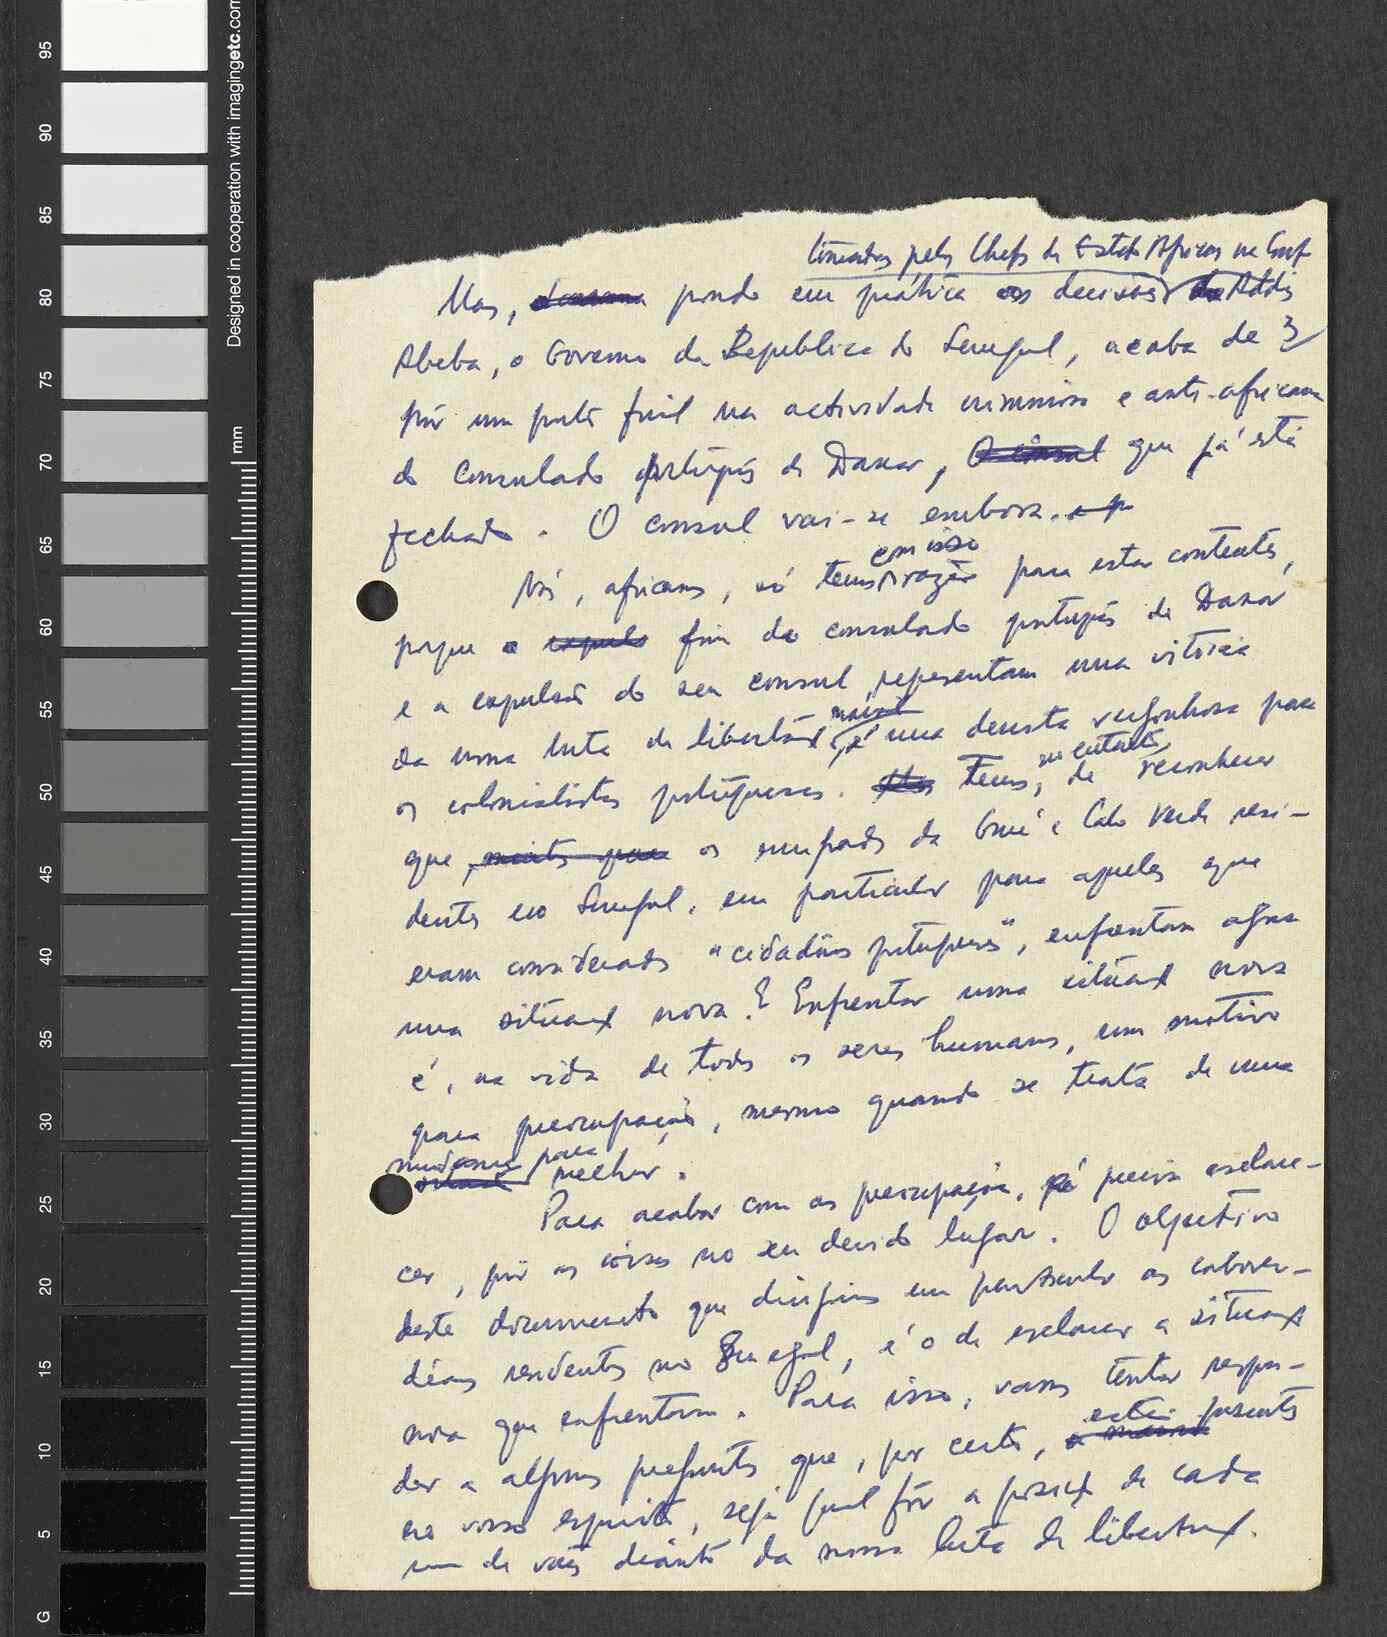 tomadas pelos Chefs de Estado Africanos na Conf.
Mas, pondo em prática as decisões de Addis
Abeba, o Governo da Republica do Senegal, acaba de
pôr um ponto final na actividade criminosa e anti-africana
do Consulado português de Dakar, que já está
fechado. O consul vai-se embora.
Nós, africanos, só temos com isso razão para estar contentes,
porque o fim do consulado português de Dakar
e a expulsão do seu consul, representam uma vitória
da nossa luta de libertação, é uma derrota vergonhosa para
os colonialistas portugueses. Temos, no entanto, de reconhecer
que os emigrados da Guiné e Cabo Verde resi-
dentes no Senegal, em particular para aqueles que
eram considerados "cidadãos portugueses", enfrentam agora
uma situação nova. E Enfrentar uma situação nova
é, na vida de todos os seres humanos, um motivo
para preocupações, mesmo quando se trata de uma
mudança para melhor.
Para acabar com as preocupações, só precisa esclare-
cer, pôr as coisas no seu devido lugar. O objectivo
deste documento que dirigimos em particular aos cabover-
deanos residentes no Senegal, é o de esclarecer a situação
nova que enfrentam. Para isso, vamos tentar respon-
der a algumas preguntas que, por certo, estão presentes
no vosso espírito, seja qual fôr a posição de cada
um de vós diante da nossa luta de libertação.
95
90
85
80
75
70
65
60
55
50
45
40
35
30
25
20
15
10
5
G
mm
Designed in cooperation with imagingetc.com